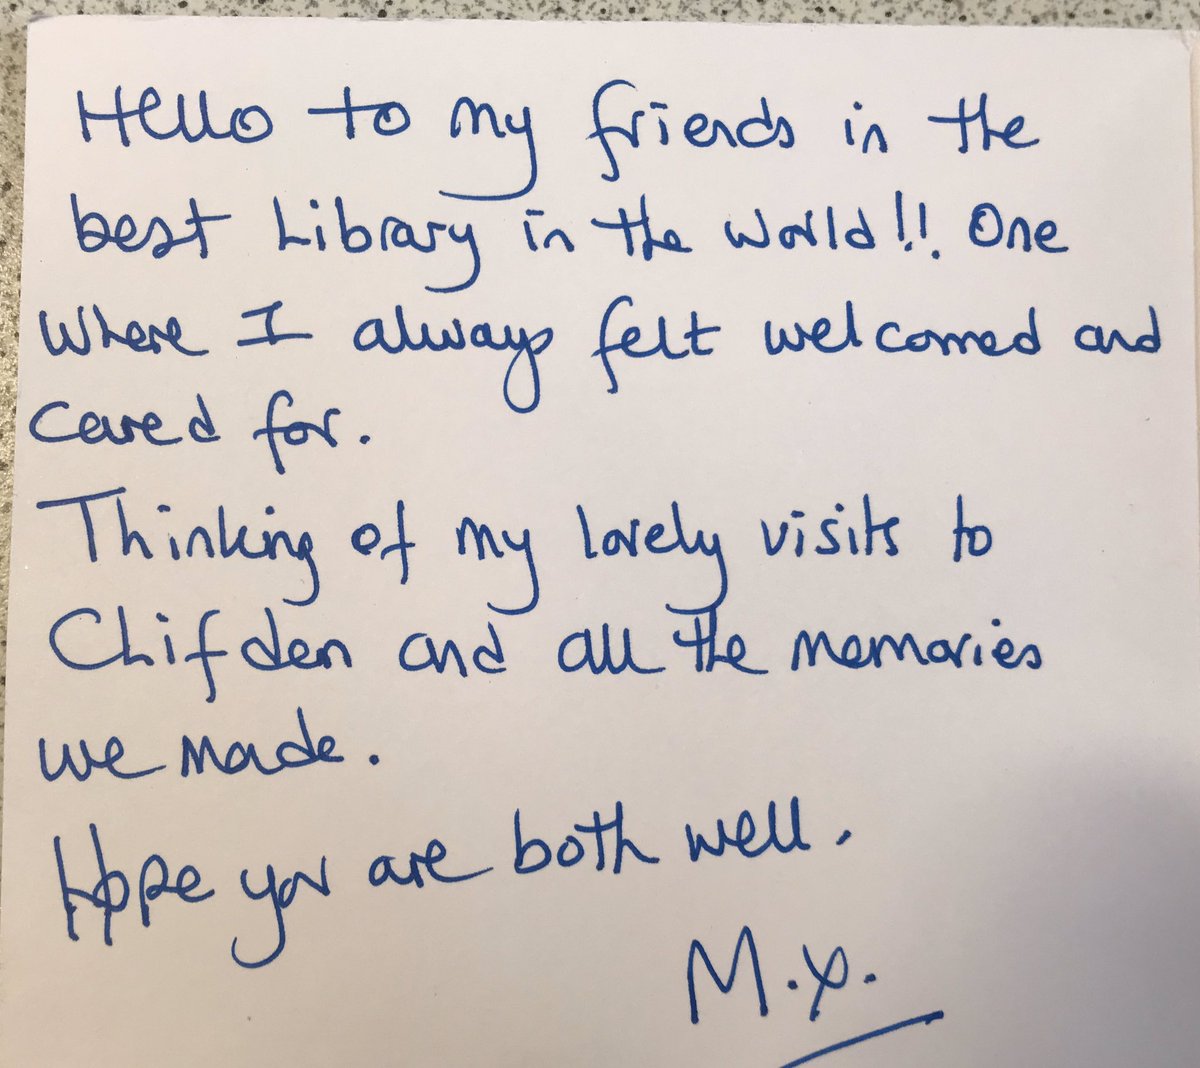 Hello to my friends in the
best Library in the world!! One
where I always felt welcomed and
cared for.
Thinking of my lovely visits to
Clifden and all the memories
we made.
Hope you are both well.
M.x.